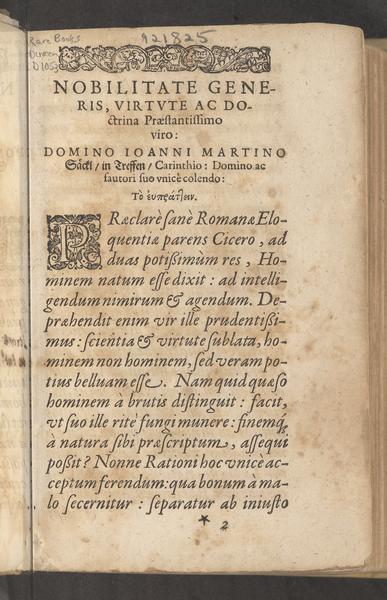 Rare Books
921825
NOBILITATE GENE-
RIS, VIRTVTE AC DO-
ctrina Præſtantiſſimo
viro:
DOMINO IOANNI MARTINO
Säckl / in Treffen / Carinthio: Domino ac
fautori ſuo vnicè colendo:
Τὸ ἐυπράττειν.
PRæclarè ſanè Romanæ Elo-
quentiæ parens Cicero, ad
duas potißimùm res, Ho-
minem natum eſſe dixit: ad intelli-
gendum nimirum & agendum. De-
præhendit enim vir ille prudentißi-
mus: ſcientia & virtute ſublata, ho-
minem non hominem, ſed veram po-
tius belluam eſſe. Nam quid quæſo
hominem à brutis diſtinguit: facit,
vt ſuo ille ritè fungi munere: finemq́;
à natura ſibi præſcriptum, aſſequi
poßit? Nonne Rationi hoc vnicè ac-
ceptum ferendum: qua bonum à ma-
lo ſecernitur: ſeparatur ab iniuſto
* 2